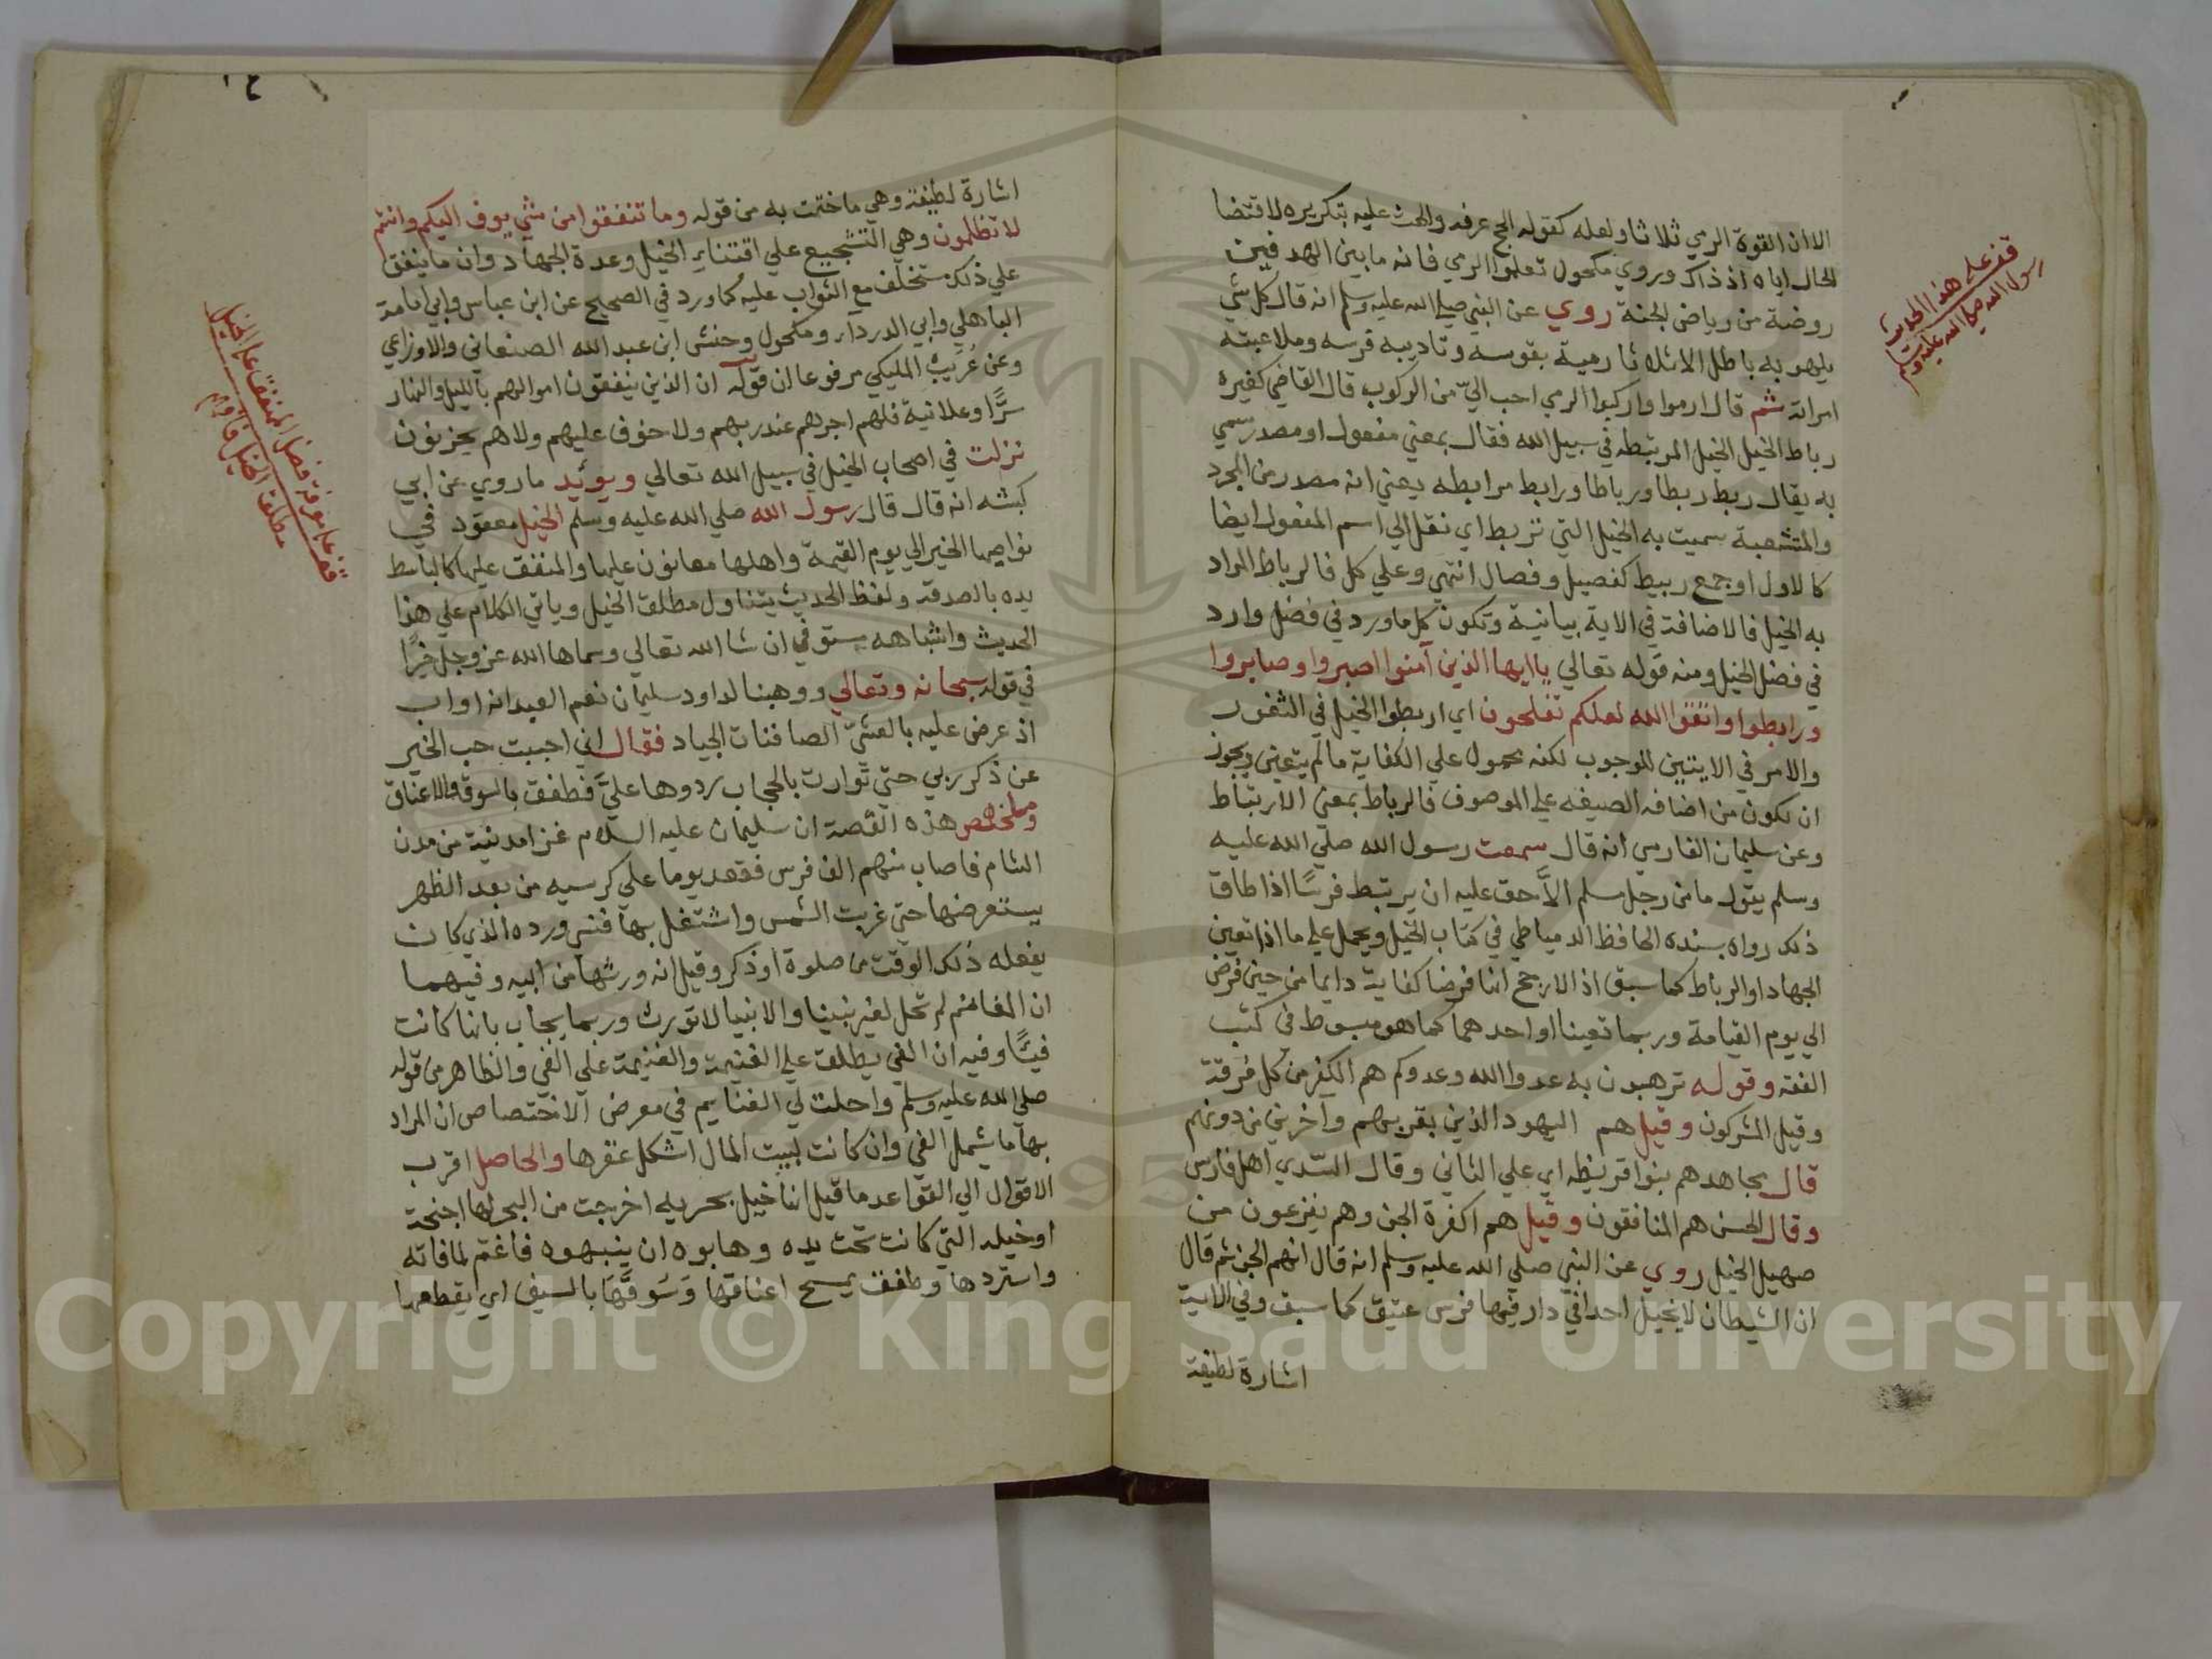 الا ان القوة الرمي ثلاثا ولعله كقوله الحج عرفه والحث عليه بتكريره لاقتضا
الحال اياه اذ ذاك وروي مكحول تعلموا الرمي فانه ما بين الهدفين
روضة من رياض الجنة روي عن النبي صلى الله عليه وسلم انه قال كل شي
يلهو به باطل الا ثلاثا رمية بقوسه وتاديبه فرسه وملاعبته
امراته ثم قال ارموا واركبوا الرمي احب الي من الركوب قال القاضي كغيره
رباط الخيل الخيل المرتبطه في سبيل الله فقال بمعني مفعول او مصدر سمي
به يقال ربط ربطا ورباطا ورابط مرابطه يعني انه مصدر من المجرد
والمتشعبة سميت به الخيل التي تربط اي نقل الي اسم المفعول ايضا
كالاول او جمع ربيط كفصيل وفصال انتهي وعلي كل فالرباط المراد
به الخيل فالاضافة في الاية بيانية وتكون كل ما ورد في فضل وارد
في فضل الخيل ومنه قوله تعالي يا ايها الذين آمنوا اصبروا وصابروا
ورابطوا واتقوا الله لعلكم تفلحون اي اربطوا الخيل في الثغور
والامر في الايتين للوجوب لكنه محمول علي الكفاية ما لم يتعين ويجوز
ان تكون من اضافه الصيفه علي الموصوف فالرباط بمعني الارتباط
وعن سليمان الفارسي انه قال سمعت رسول الله صلي الله عليه
وسلم يقول ما من رجل مسلم الا حق عليه ان يرتبط فرسا اذا طاق
ذلك رواه بسنده الحافظ الدمياطي في كتاب الخيل ويحمل علي ما اذا تعين
الجهاد او الرباط كما سبق اذ الارجح انها فرضا كفاية دايما من حين فرض
الي يوم القيامة وربما تعينا او احدهما كما هو مبسوط في كتب
الفقه وقوله ترهبون به عدوا الله وعدوكم هم الكفر من كل فرقة
وقيل المشركون وقيل هم اليهود الذين بقربهم وآخرين من دونهم
قال مجاهد هم بنوا قريظه اي علي الثاني وقال السدي اهل فارس
وقال الحسن هم المنافقون وقيل هم اكفرة الجن وهم يفزعون من
صهيل الخيل روي عن النبي صلي الله عليه وسلم انه قال انهم الجن ثم قال
ان الشيطان لا يخيل احدا في دار فيها فرس عتيق كما سبق وفي الاية
اشارة لطيفة
قف على هذا الحديث
رسول الله صلى الله عليه وسلم
اشارة لطيفة وهي ما ختمت به من قوله وما تنفقوا من شي يوف اليكم وانتم
لا تظلمون وهي التشجيع علي اقتناء الخيل وعدة الجهاد وان ما ينفق
علي ذلك مستخلف مع الثواب عليه كما ورد في الصحيح عن ابن عباس وابي امامة
الباهلي وابي الدرداء ومكحول وحنش ابن عبد الله الصنعاني والاوزاعي
وعن عُرَيْب المليكي مرفوعا ان قوله ان الذين ينفقون اموالهم بالليل والنهار
سرًّا وعلانية فلهم اجرهم عند ربهم ولا خوف عليهم ولا هم يحزنون
نزلت في اصحاب الخيل في سبيل الله تعالي ويوئيد ما روي عن ابي
كبشه انه قال قال رسول الله صلي الله عليه وسلم الخيل معقود في
نواصيها الخير الي يوم القيمة واهلها معانون عليها والمنفق عليها كالباسط
يده بالصدقة ولفظ الحديث يتناول مطلق الخيل وياتي الكلام علي هذا
الحديث واشباهه مستوفي ان شا الله تعالي وسماها الله عز وجل خيرًا
في قوله سبحانه وتعالي ووهبنا لداود سليمان نعم العبد انه اواب
اذ عرض عليه بالعشيّ الصافنات الجياد فقال اني احببت حب الخير
عن ذكر ربي حتي توارت بالحجاب ردوها عليَّ فطفق بالسوق والاعناق
وملخص هذه القصة ان سليمان عليه السلام غزا مدينة من مدن
الشام فاصاب منهم الف فرس فقعد يوما علي كرسيه من بعد الظهر
يستعرضها حتي غربت الشمس واشتغل بها فنسي ورده الذي كان
يفعله ذلك الوقت من صلوة او ذكر وقيل انه ورثها من ابيه وفيهما
ان المغانم لم تحل لغير نبينا والانبيا لا تورث وربما يجاب بانها كانت
فيئًا وفيه ان الفي يطلق علي الغنيمة والغنيمة علي الفي والظاهر من قوله
صلي الله عليه وسلم واحلت لي الغنايم في معرض الاختصاص ان المراد
بها ما يشمل الفي وان كانت لبيت المال اشكل عقرها والحاصل اقرب
الاقوال الي القواعد ما قيل انها خيل بحريه اخرجت من البحر لها اجنحة
او خيله التي كانت تحت يده وهابوه ان ينبهوه فاغتم لما فاته
واستردها وطفق يمسح اعناقها وسوقها بالسيف اي يقطعها
قف علي معرفة فضل المنفق علي الخيل
مطلق الخيل
Copyright © King Saud University